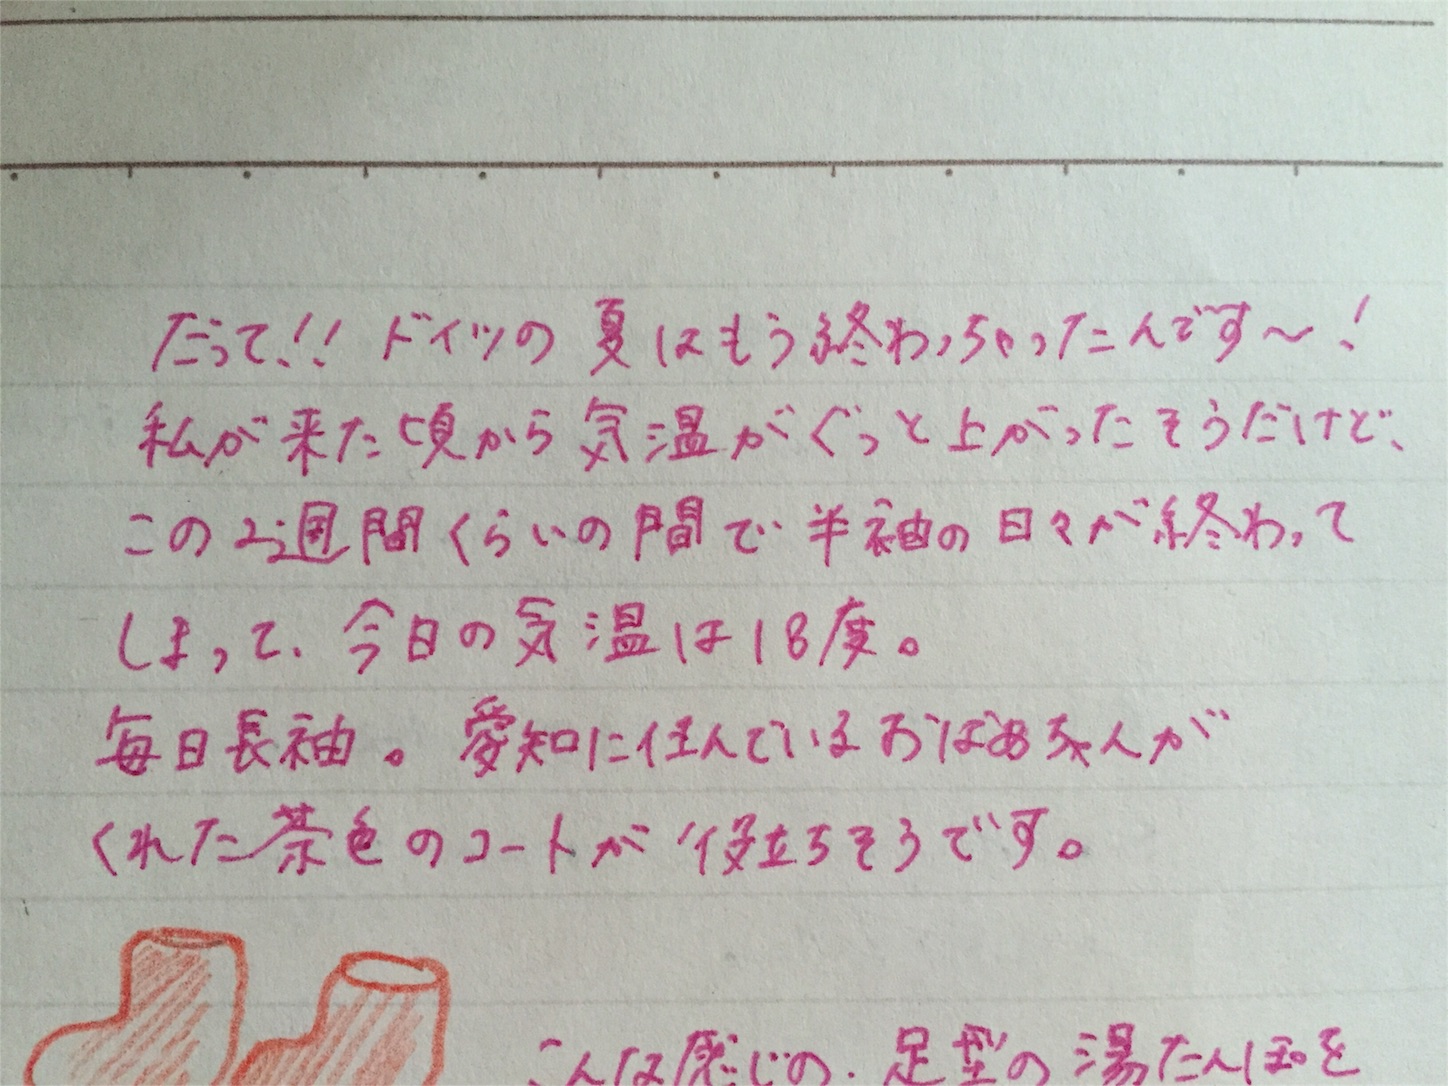 だって!! ドイツの夏はもう終わっちゃったんです〜!
私が来た頃から気温がぐっと上がったそうだけど、
この2週間くらいの間で半袖の日々が終わって
しまって、今日の気温は18度。
毎日長袖。愛知に住んでいるおばあちゃんが
くれた茶色のコートが役立ちそうです。
こんな感じの、足型の湯たんぽを